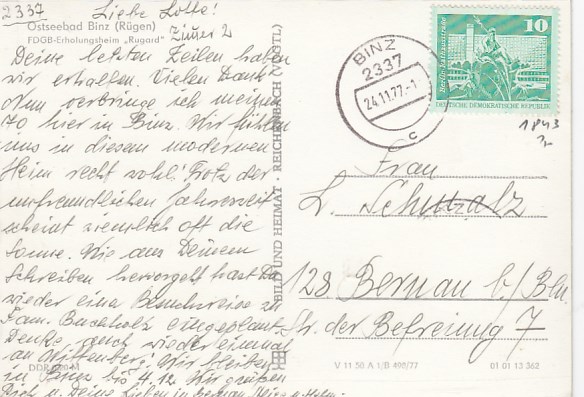 2337 Liebe Lotte!
Ostseebad Binz (Rügen)
FDGB-Erholungsheim „Rugard" Zimer 2
Deine letzten Zeilen haben
wir erhalten. Vielen Dank
Nun verbringe ich meinen
70, hier in Binz. Wir fühlen
uns in diesem modernen
Heim recht wohl! Trotz der
unfreundlichen Jahreszeit
scheint ziemlich oft die
Sonne. Wie aus Deinem
Schreiben hervorgeht, hast Du
wieder eine Besuchsreise zu
Fam. Buchholz eingeplant.
Denke auch wieder einmal
an Wittenberg! Wir bleiben
in Binz bis 4.12. Wir grüßen
Dich u. Deine Lieben in Bernau
DDR
BILD UND HEIMAT · REICHENBACH (VOGTL)
BINZ
2337
24.11.77.-1
c
Berlin, Rathausstraße
10
DEUTSCHE DEMOKRATISCHE REPUBLIK
1843
Frau
L. Schulz
128 Bernau b/Bln
Str. der Befreiung 7
V 11 50 A 1/B 498/77
01 01 13 362